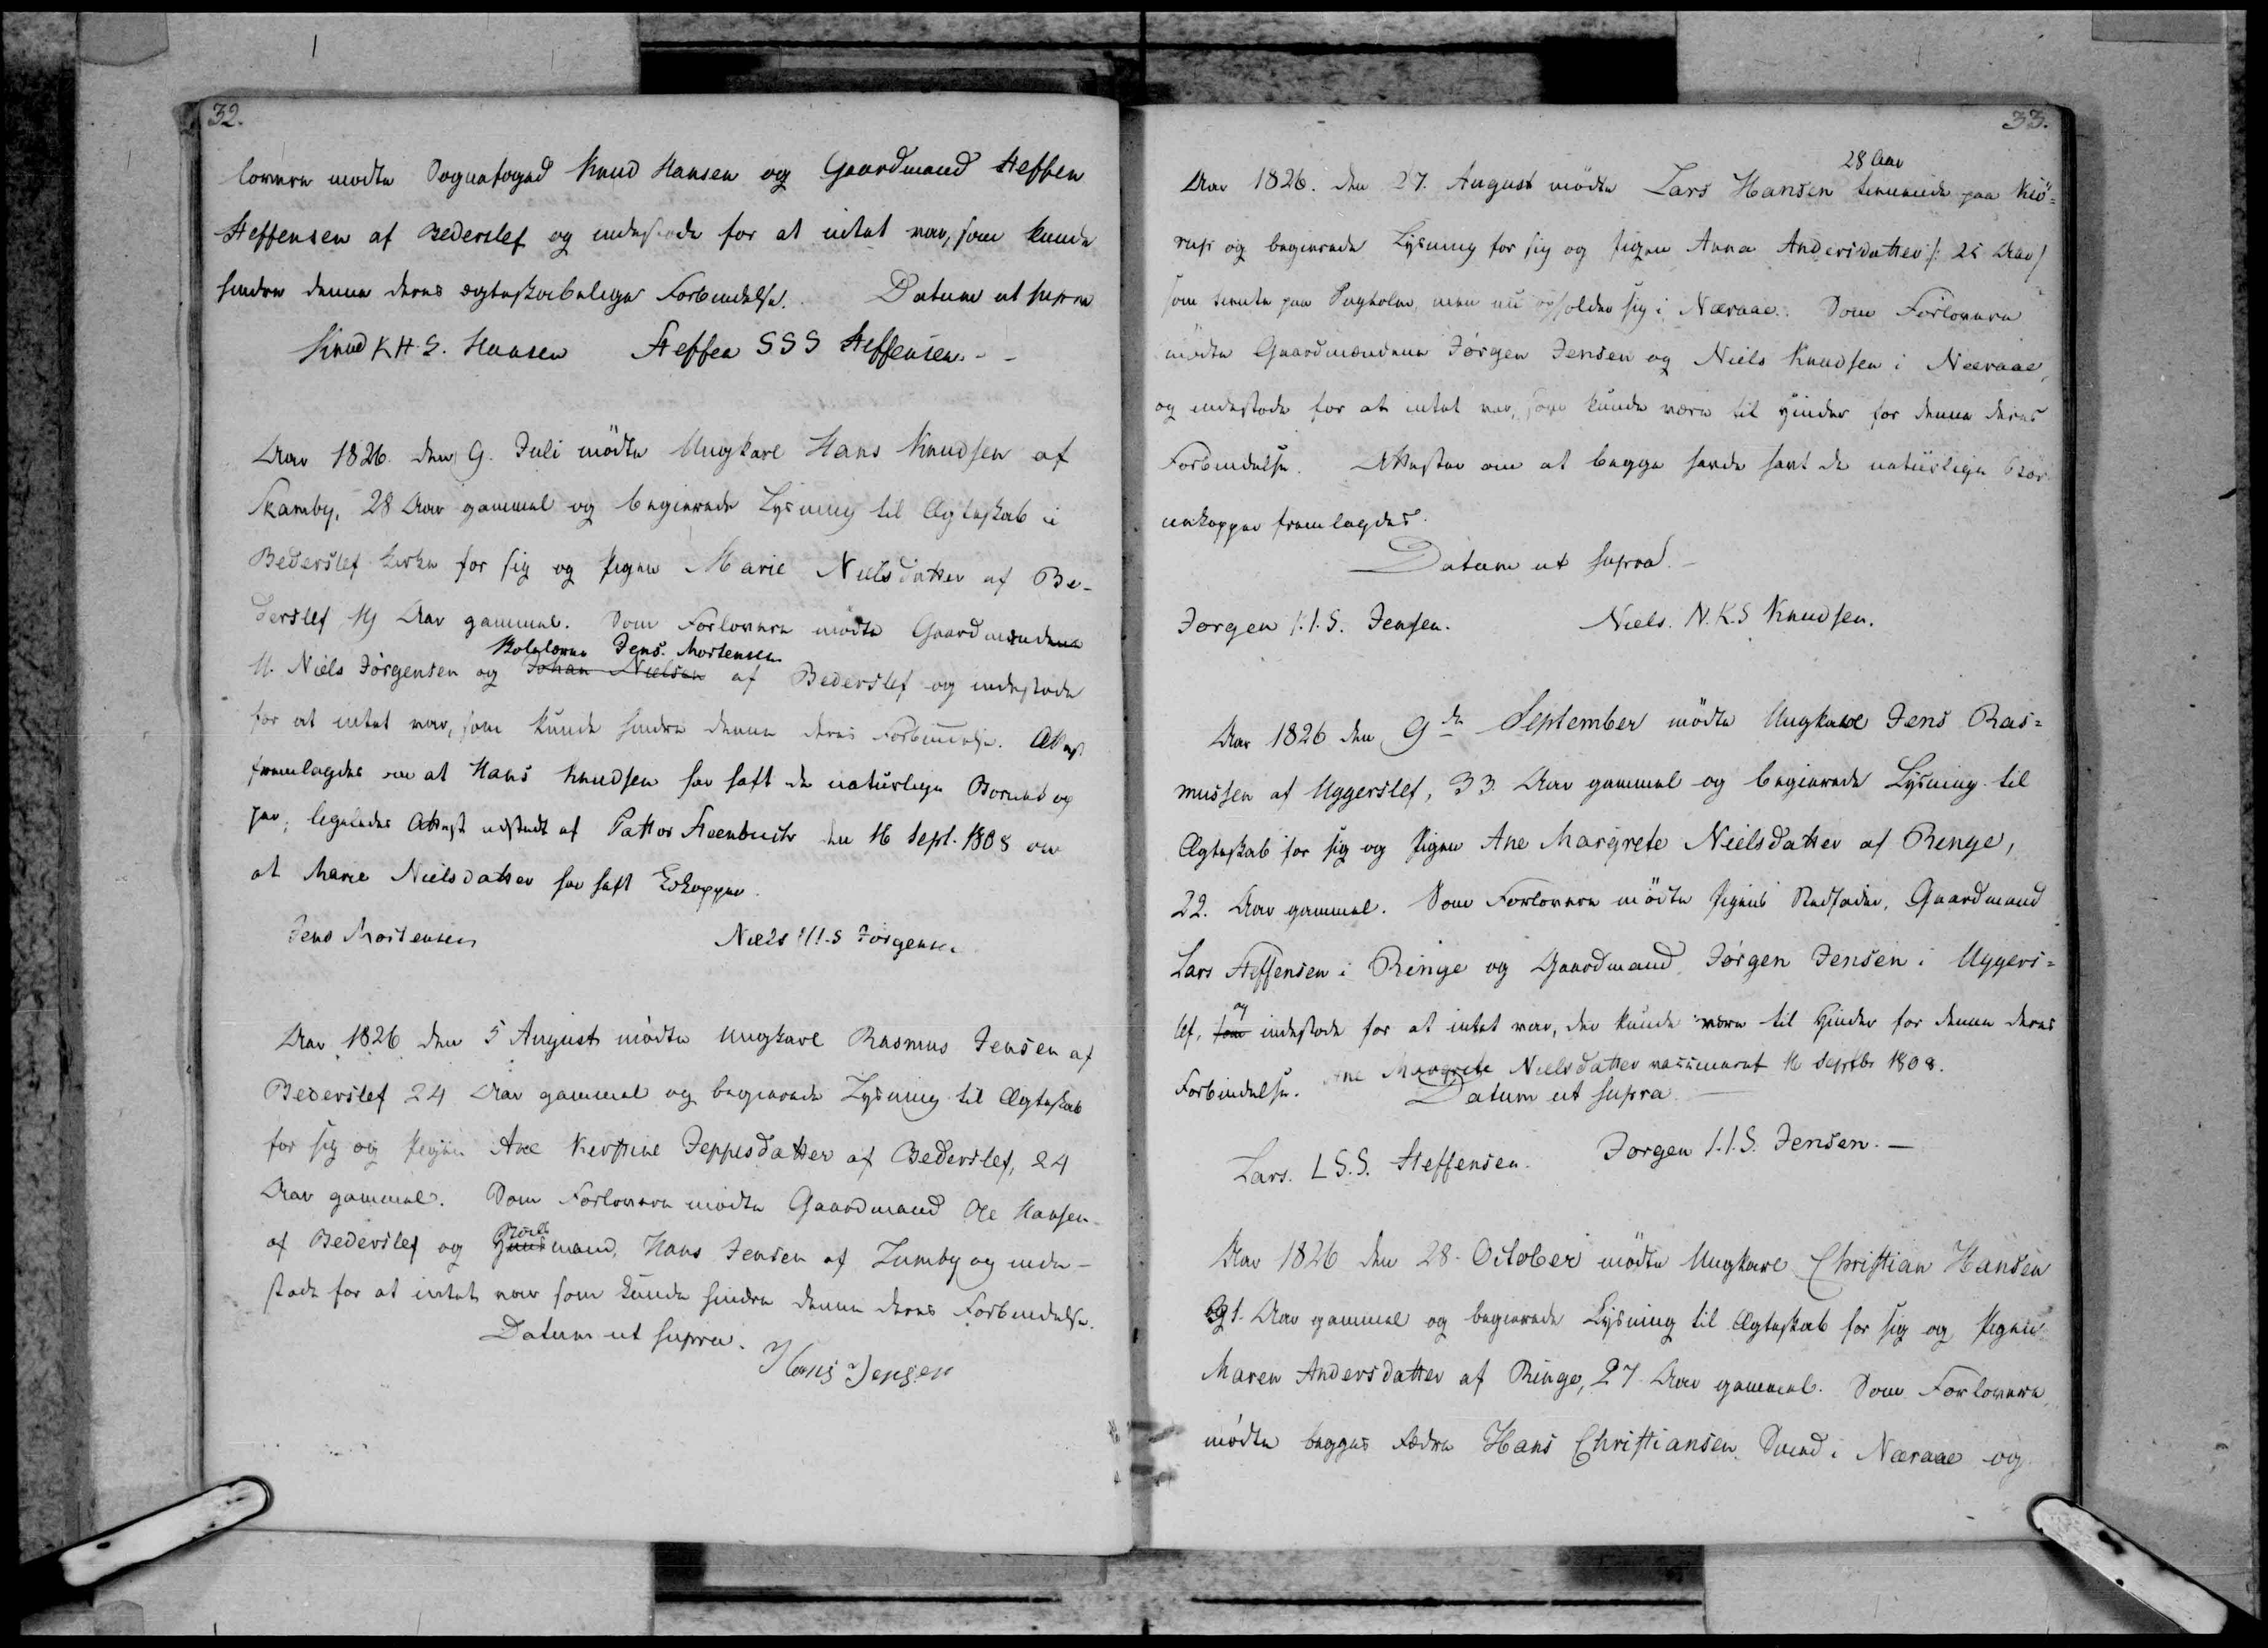 32.
lovere mødte Sognefoged Knud Hansen og Gaardmand Steffen
Steffensen af Bederslef og indestode for at intet var, som kunde
hindre denne deres ægteskabelige Forbindelse. Datum ut supra
Knud K.H.S. Hansen Steffen SSS Steffensen.
Aar 1826. den 9. Juli mødte Ungkarl Hans Knudsen af
Skamby, 28 Aar gammel og begierede Lysning til Ægteskab i
Bederslef Kirke for sig og Pigen Marie Nielsdatter af Be-
derslef Aar gammel. Som Forlovere mødte Gaardmændene
Skolelærer Jens Mortensen
Niels Jørgensen og Johan Nielsen af Bederslef og indestode
for at intet var, som kunde hindre denne deres Forbindelse. Attest
fremlagdes om at Hans Knudsen har haft de naturlige Børnekop
per, ligeledes Attest udstedt af Pastor Steenbuch den 16 Sept. 1808 om
at Marie Nielsdatter har haft Kokopper.
Jens Mortensen Niels I.S Jørgensen
Aar 1826 den 5 August mødte Ungkarl Rasmus Jensen af
Bederslef 24 Aar gammel og begierede Lysning til Ægteskab
for sig og Pigen Ane Kirstine Jeppesdatter af Bederslef, 24
Aar gammel. Som Forlovere mødte Gaardmand Ole Hansen
af Bederslef og Huusmand, Hans Jensen af Lumby og inde-
stode for at intet var som kunde hindre denne deres Forbindelse.
Datum ut supra.
Hans Jensen
33.
28 Aar
Aar 1826. den 27. August mødte Lars Hansen tienende paa Kiö=
rup og begierede Lysning for sig og Pigen Anna Andersdatter /: 25 Aar /
som tiente paa men nu opholder sig i Næraae. Som Forlovere
mødte Gaardmændene Jørgen Jensen og Niels Knudsen i Næraae,
og indestode for at intet var, som kunde være til Hinder for denne deres
Forbindelse. Attester om at begge havde havt de naturlige Bør
nekopper fremlagdes.
Datum ut supra.
Jørgen I.I.S. Jensen. Niels. N.K.S Knudsen.
Aar 1826 den 9de September mødte Ungkarl Jens Ras=
mussen af Uggerslef, 33 Aar gammel og begierede Lysning til
Ægteskab for sig og Pigen Ane Margrete Nielsdatter af Ringe,
22. Aar gammel. Som Forlovere mødte Pigens Stedfader, Gaardmand
Lars Steffensen i Ringe og Gaardmand Jørgen Jensen i Uggers=
og
lef, som indestode for at intet var, der kunde være til Hinder for denne deres
Forbindelse. Ane Margrete Nielsdatter vaccineret 16 Septbr 1808.
Datum ut supra.
Lars. L S.S. Steffensen. Jørgen I.I.S. Jensen.
Aar 1826 den 28. October mødte Ungkarl Christian Hansen
Aar gammel og begierede Lysning til Ægteskab for sig og Pigen
Maren Andersdatter af Ringe, 27 Aar gammel. Som Forlovere
mødte begges Fædre Hans Christiansen Smed i Næraae og